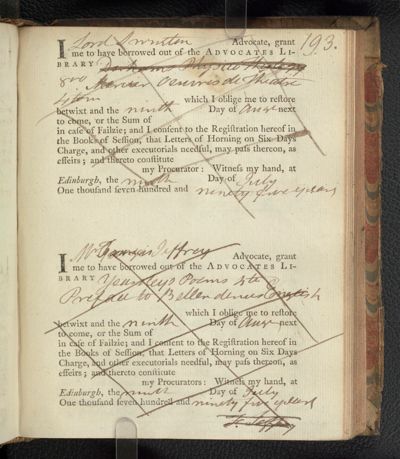 193.
I Lord Swinton Advocate, grant
me to have borrowed out of the ADVOCATES LI-
BRARY Derham Physico Theology
8vo Mercier Oeuvres de Theatre
which I oblige me to restore
betwixt and the ninth Day of Augt next
to come, or the Sum of
in case of Failzie; and I consent to the Registration hereof in
the Books of Session, that Letters of Horning on Six Days
Charge, and other executorials needful, may pass thereon, as
effeirs; and thereto constitute
my Procurator: Witness my hand, at
Edinburgh, the ninth Day of July
One thousand seven hundred and ninety five years
I Mr Francis Jeffrey Advocate, grant
me to have borrowed out of the ADVOCATES LI-
BRARY Yearsleys Poems 4to &
Preface to Bellendenus English
which I oblige me to restore
betwixt and the ninth Day of Augt next
to come, or the Sum of
in case of Failzie; and I consent to the Registration hereof in
the Books of Session, that Letters of Horning on Six Days
Charge, and other executorials needful, may pass thereon, as
effeirs; and thereto constitute
my Procurators: Witness my hand, at
Edinburgh, the ninth Day of July
One thousand seven hundred and ninety five years
F. Jeffrey